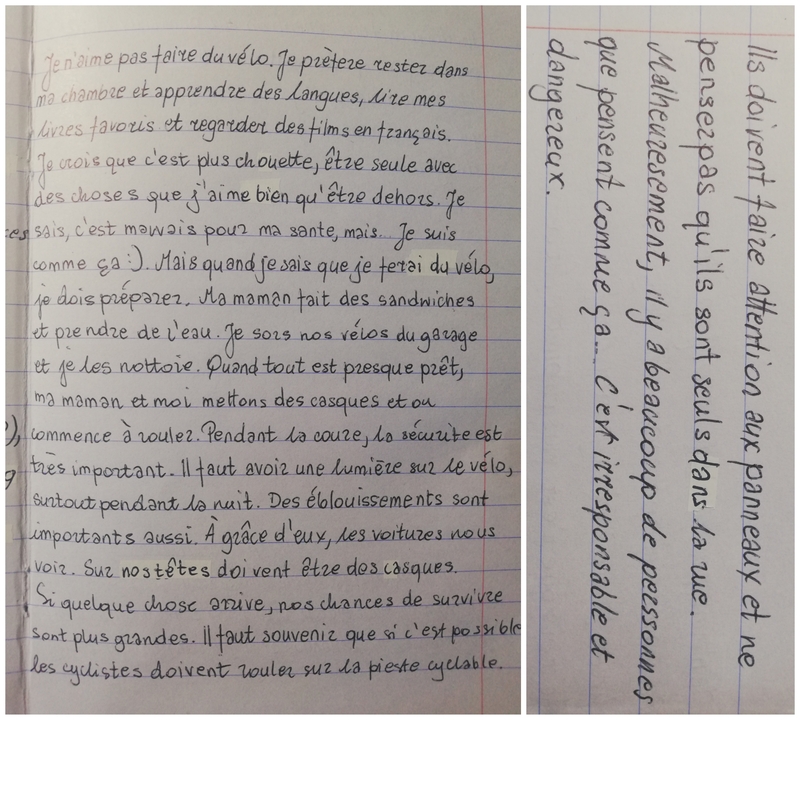 Je n'aime pas faire du vélo. Je prèfere rester dans
ma chambre et apprendre des langues, lire mes
livres favoris et regarder des films en français.
Je crois que c'est plus chouette, être seule avec
des choses que j'aime bien qu'être dehors. Je
sais, c'est mawais pour ma sante, mais... Je suis
comme ça :). Mais quand je sais que je ferai du vélo,
je dois préparer. Ma maman fait des sandwiches
et prendre de l'eau. Je sors nos vélos du garage
et je les nottoie. Quand tout est presque prêt,
ma maman et moi mettons des casques et on
commence à rouler. Pendant la coure, la sécurite est
très important. Il faut avoir une lumière sur le vélo,
surtout pendant la nuit. Des éblouissements sont
importants aussi. À grâce d'eux, les voitures nous
voir. Sur nos têtes doivent être des casques.
Si quelque chose arrive, nos chances de survivre
sont plus grandes. Il faut souvenir que si c'est possible
les cyclistes doivent rouler sur la pieste cyclable.
Ils doivent faire attention aux panneaux et ne
penser pas qu'ils sont seuls dans la rue.
Malheuresement, il y a beaucoup de perssonnes
que pensent comme ça... C'est irresponsable et
dangereux.